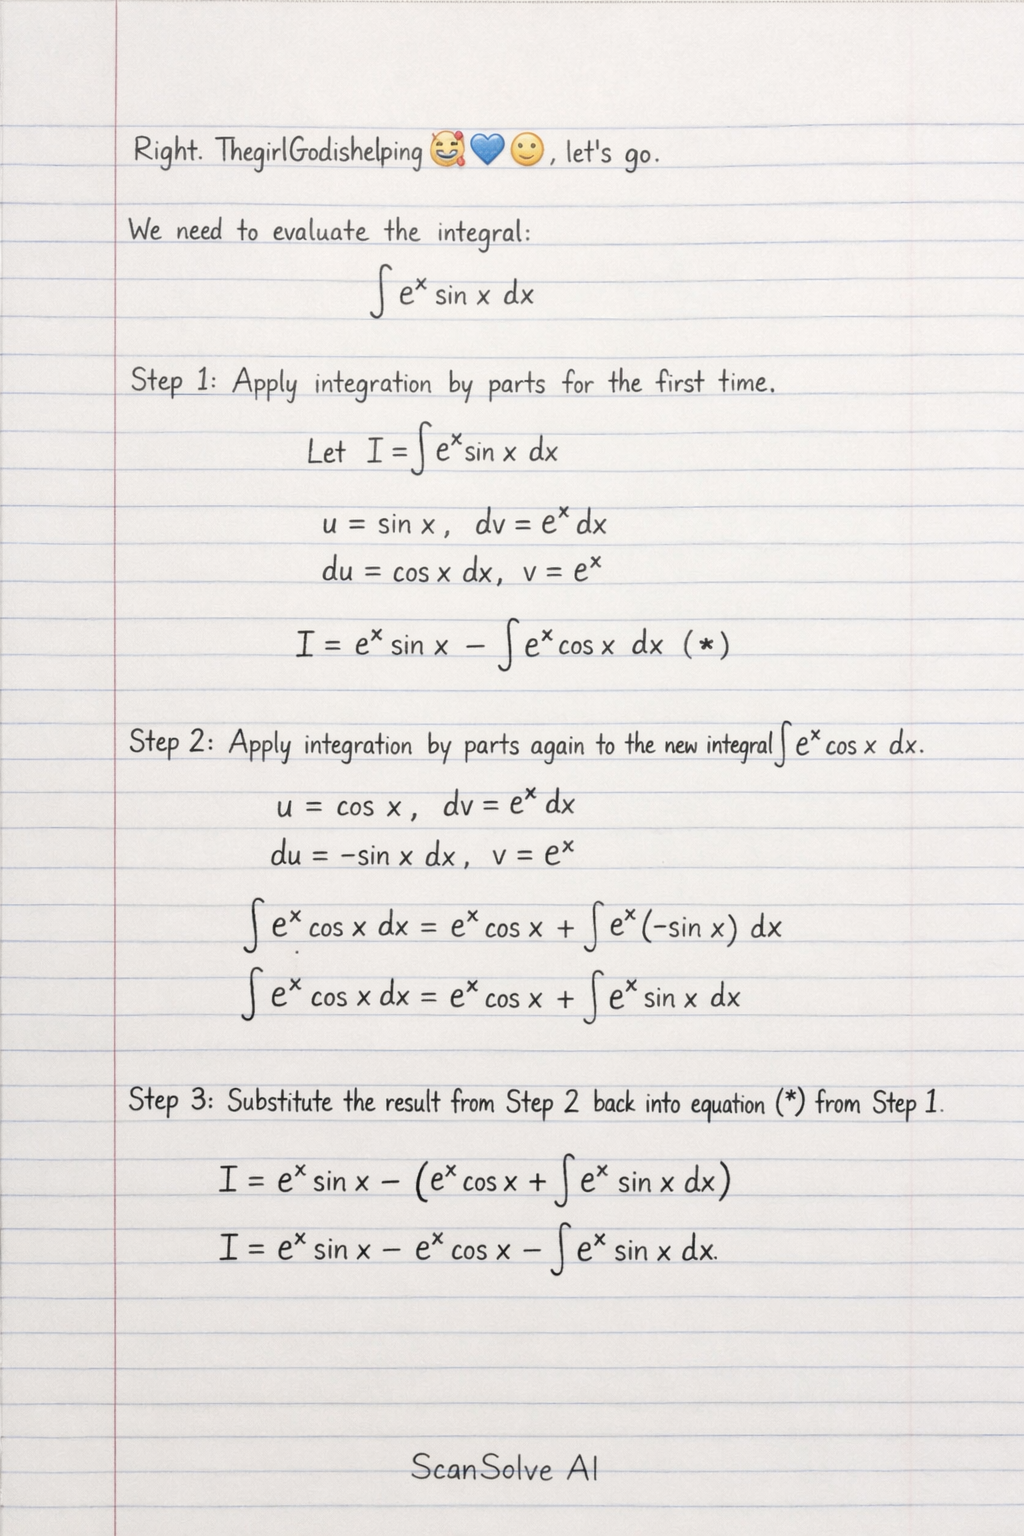 Right. ThegirlGodishelping 🥰💙🙂, let's go.
We need to evaluate the integral:
∫ eˣ sin x dx
Step 1: Apply integration by parts for the first time.
Let I = ∫ eˣ sin x dx
u = sin x, dv = eˣ dx
du = cos x dx, v = eˣ
I = eˣ sin x − ∫ eˣ cos x dx (*)
Step 2: Apply integration by parts again to the new integral ∫ eˣ cos x dx.
u = cos x, dv = eˣ dx
du = −sin x dx, v = eˣ
∫ eˣ cos x dx = eˣ cos x + ∫ eˣ (−sin x) dx
∫ eˣ cos x dx = eˣ cos x + ∫ eˣ sin x dx
Step 3: Substitute the result from Step 2 back into equation (*) from Step 1.
I = eˣ sin x − (eˣ cos x + ∫ eˣ sin x dx)
I = eˣ sin x − eˣ cos x − ∫ eˣ sin x dx.
ScanSolve AI